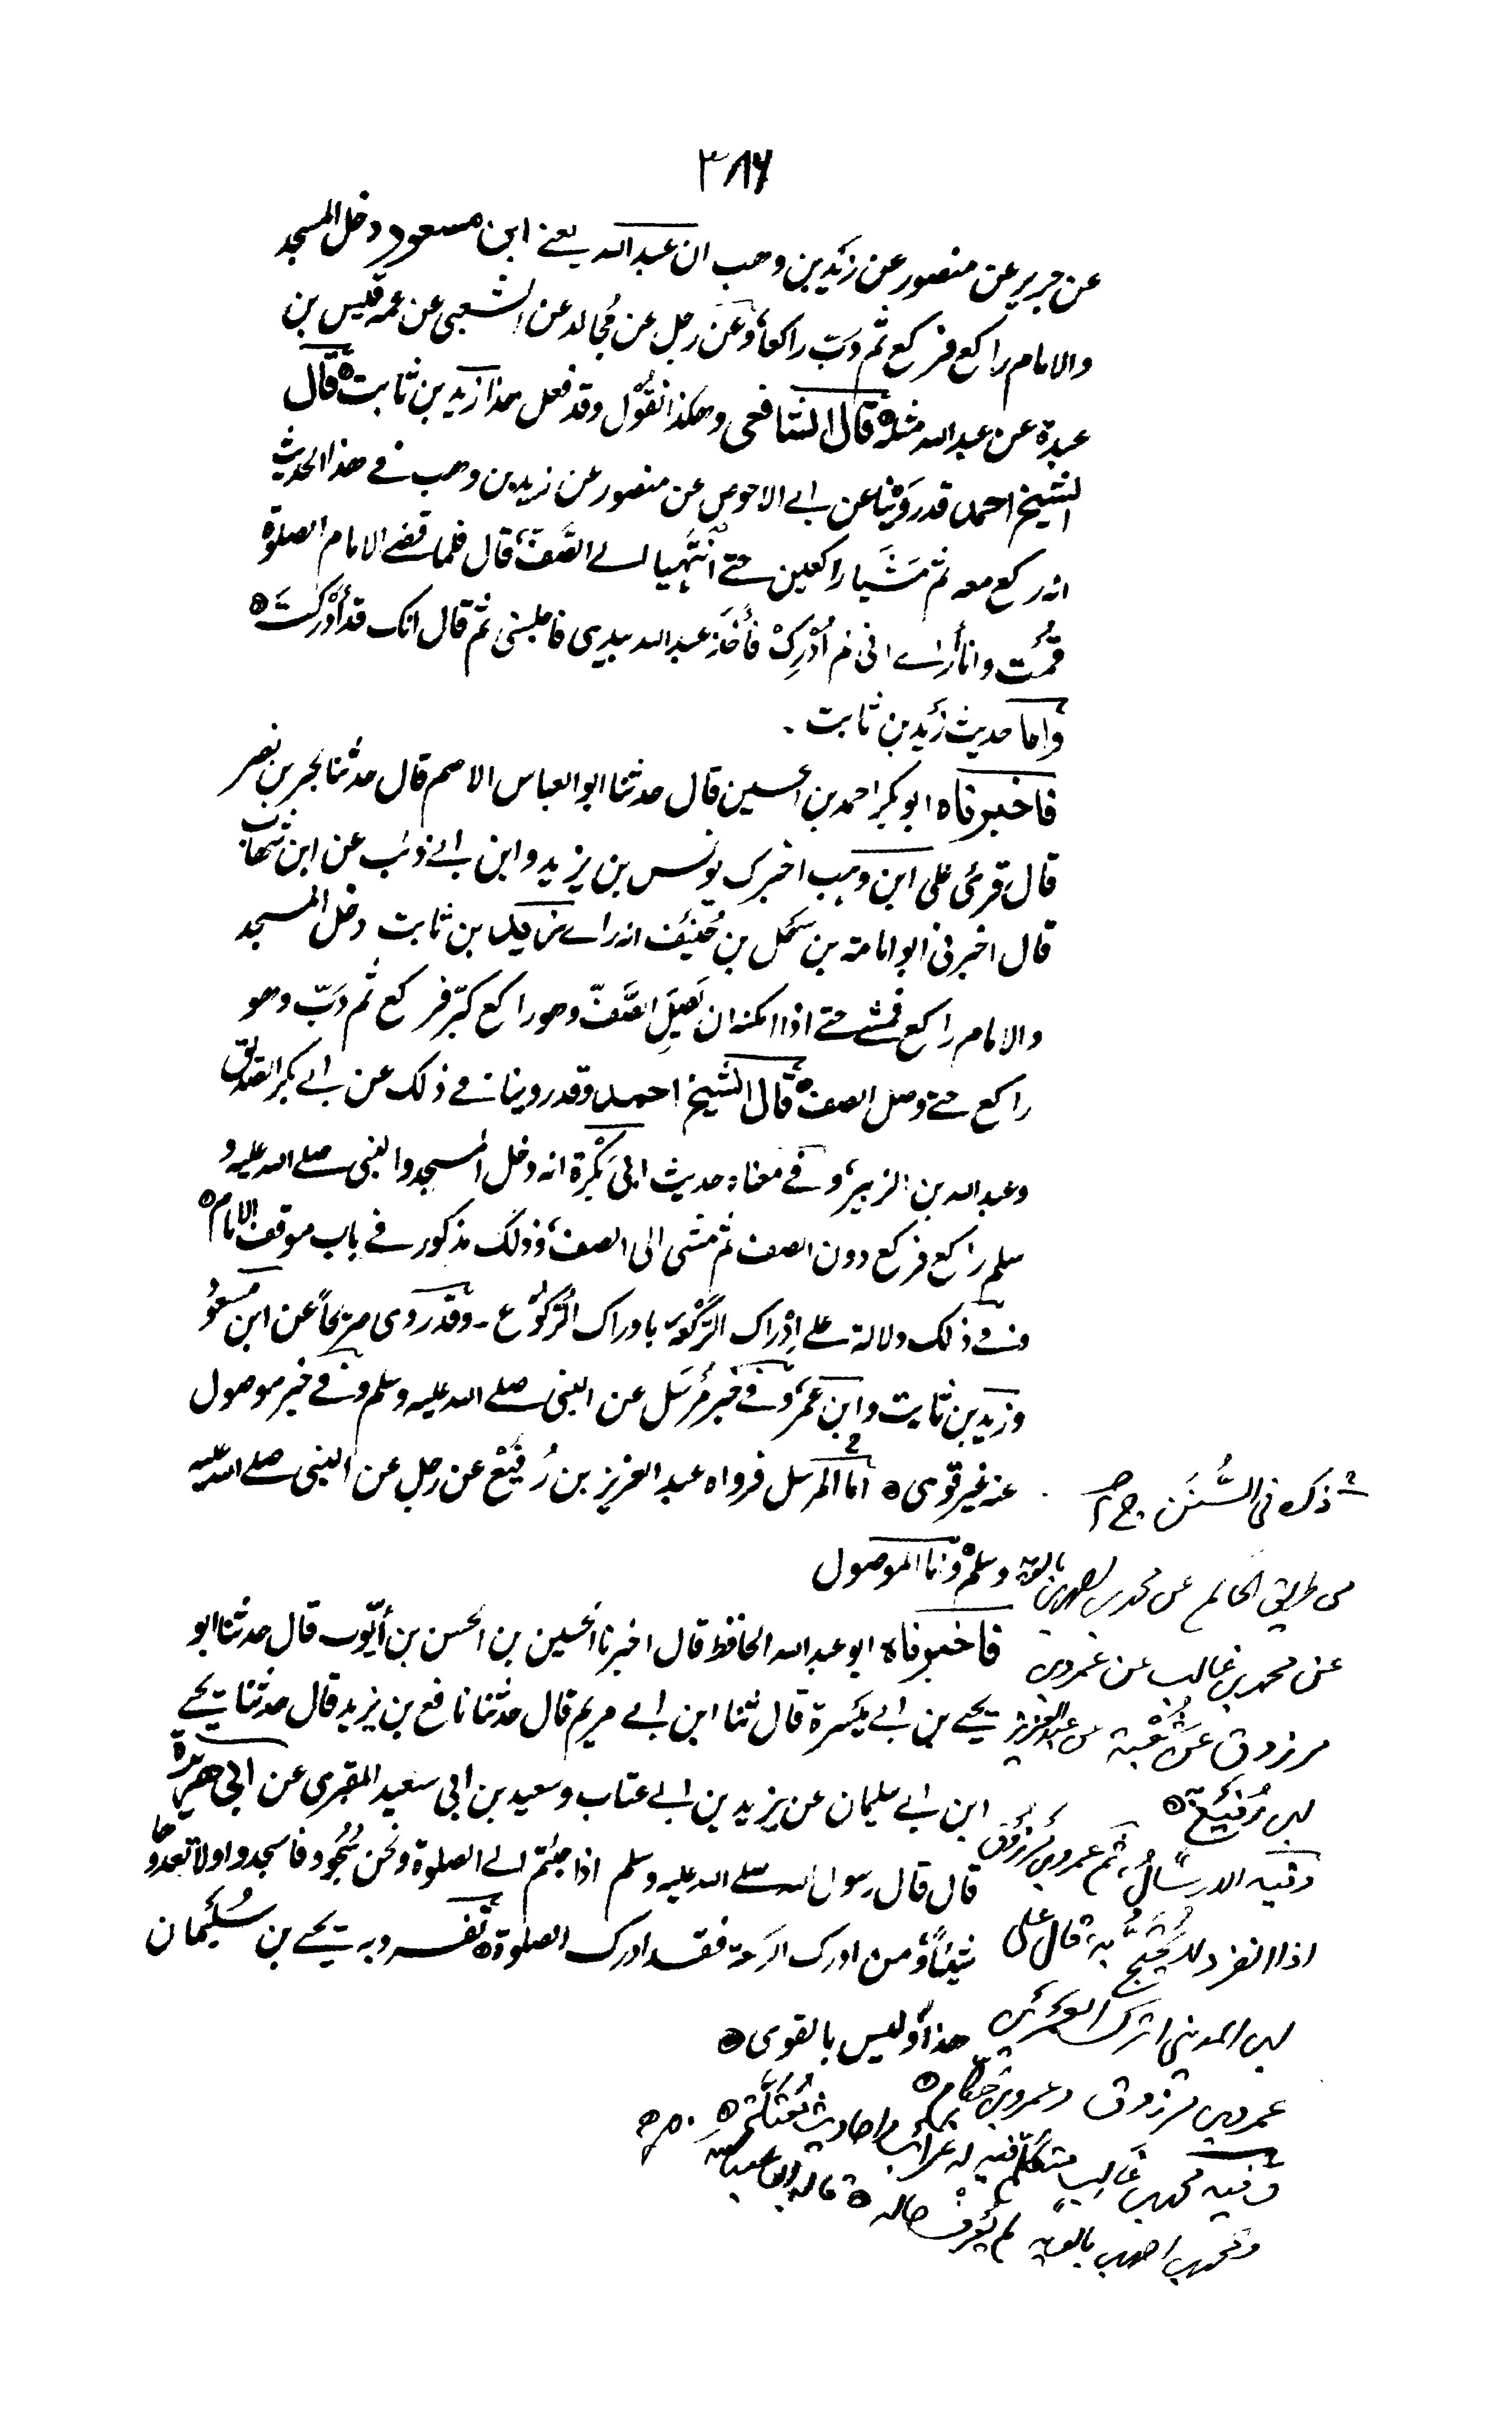 ٣٨٦
عن جرير عن منصور عن زيد بن وهب ان عبد الله يعنے ابن مسعود دخل المسجد
والامام راكع فركع ثم دَبّ راكعا، وعن رجل عن مُجالد عن الشعبى عن عمه قيس بن
عبدة عن عبد الله مثله قال الشافعى وهكذا نقُول وقد فعل هذا زيد بن ثابت قال
الشيخ احمد قد روَيْنا عن ابے الاحوص عن منصور عن زيد بن وهب فے هذا الحديث
انه ركع معه ثم مَشَيا راكعين حتے انتَهَيا الے الصَّفّ، قال فلما قضے الامام الصلوة
قمُت وانا أراے انى لم اُدْرِكْ فأخَذ عبد الله بيدى فاجلسنى ثم قال انك قد أدْرَكْتَ
واما حديث زيد بن ثابت .
فاخبرناه ابو بكر احمد بن الحسين قال حدثنا ابو العباس الاصم قال حدثنا بحر بن نصر
قال قرئ على ابن وهب اخبرك يونس بن يزيد وابن ابے ذئب عن ابن شهاب
قال اخبرنى ابو امامة بن سَهْل بن حُنَيْف انه راے زيد بن ثابت دخل المسجد
والامام راكع فمشے حتے اذا امكنه ان يَصِلَ الصَّفّ وهو راكع كبّر فركع ثم دَبّ وهو
راكع حتے وصل الصف قال الشيخ احمد وقد روينا فے ذلك عن ابے بكر الصديق
وعبد الله بن الزبير، وفے معناه حديث ابى بَكْرة انه دخل المسجد والنبى صلے الله عليه و
سلم راكع فركع دون الصف ثم مشى الى الصف، وذلك مذكور فے باب موقف الامام
وفے ذلك دلالة علے اِدْراك الرَّكْعَة بادراك الرُّكوُع ـ وقد روى صريحاً عن ابن مسعود
وزيد بن ثابت وابن عمر، وفے خبر مُرسَل عن النبى صلے الله عليه وسلم وفے خبر موصول
عنه غير قوى اما المرسل فرواه عبد العزيز بن رُفَيْع عن رجل عن النبى صلے الله عليه
وسلم وَامّا الموصول
فاخبرناه ابو عبد الله الحافظ قال اخبرنا الحسين بن الحسن بن أيّوب قال حدثنا ابو
يحے بن ابے مَيْسرة قال ثنا ابن ابے مريم قال حدثنا نافع بن يزيد قال حدثنا يحے
ابن ابے سليمان عن يزيد بن ابے عتاب وسعيد بن ابى سعيد المقبرى عن ابى هريرة
قال قال رسول الله صلے الله عليه وسلم اذا جئتم الے الصلوة ونحن سُجُود فاسجدوا ولا تعدّوها
شيئاً ومن ادرك الركعة فقد ادرك الصلوة تفرد به يحے بن سُلَيْمان
هذا وليس بالقوى
٢ ذكره فى السُّنَن ج ٢ ص
من طريق الحاكم عن محمد بن احمد بن بالويه
عن محمد بن غالب عن عمرو بن
مرزوق عن شُعْبة عن عبد العزيز
بن رُفَيْع
وفيه الارسالُ، ثم عمرو بن مرزوق
اذا انفرد لا يُحْتَجُّ به، قال على
بن المدينى اترك العَمْرَيْن
عمرو بن مرزوق وعمرو بن حكّام
وفيه محمد بن غالِب متكلَّم فيه له غرائب واحاديث
ومحمد بن احمد بن بالويه لم يُعْرَف حاله